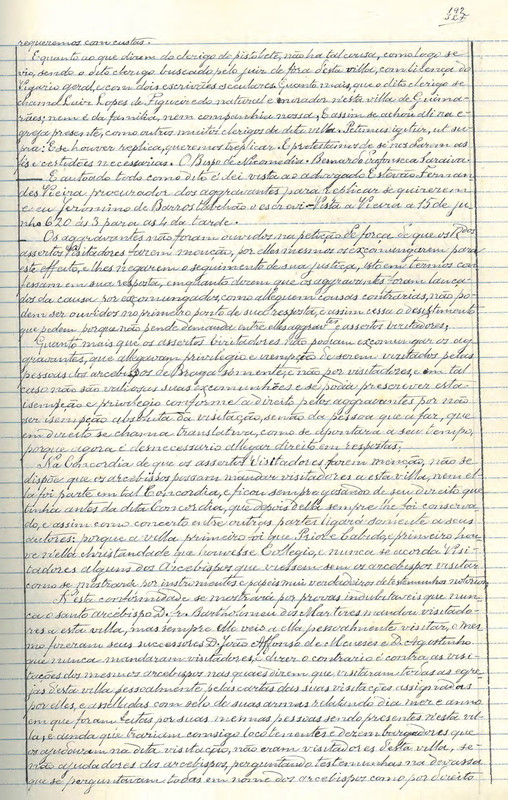 192
requeremos com custas.
E quanto ao que dizem do clerigo de pistolete, não ha tal cousa, como logo se
vio, sendo o dito clerigo buscado pelo juiz de fora d'esta villa, com licença do
Vigario geral, e com dois escrivães seculares. Quanto mais, que o dito clerigo se
chama Luiz Lopes de Figueiredo natural e morador n'esta villa de Guima-
rães; nem e da familia, nem companhia nossa, E assim se achou ali na e
greja presente, como outros muitos clerigos de dita villa. Petimus igitur, ut su-
pra; E se houver replica, queremos treplicar. E protestamos de se nos darem as
certidões necessarias. O Bispo de Nicomedia = Bernardo da fonseca Saraiva
E autoado todo como dito é dei vista ao advogado Estevão Fernan-
des Vieira procurador dos aggravantes para replicar se quizerem
e eu Jeronimo de Barros o escrevi = Vista a Vieira a 15 de ju-
nho 620 ás 3 para as 4 da tarde.
Os aggravantes não foram ouvidos na petição de força de que os R.dos
assertos Visitadores fazem menção, por elles mesmos os excomungarem para
este effeito, e lhes negarem o seguimento de sua justiça, isto em termos con-
fessam em sua resposta, emquanto dizem que os aggravantes foram lança-
dos da causa por excomungados, como alleguem cousas contrarias, não po-
dem ser ouvidos no primeiro ponto de sua resposta, e assim cessa o desistimento
que pedem porque não pende demanda entre elles aggrav.tes e assertos visitadores;
Quanto mais que os assertos visitadores não podiam excomungar os ag-
gravantes, que allegaram privilegio e izempção de serem visitados pelas
pessoas dos arcebispos de Braga sómente, e não por visitadores, e em tal
caso não são valiosas suas excomunhões e se podia prescrever esta
isempção e privilegio conforme a direito pelos aggravantes por não
ser isempção absoluta da visitação, senão da pessoa que a faz, que
em direito se chama translativa, como se apontará a seu tempo,
porque agora é desnecessario allegar direito em respostas;
Na Concordia de que os assertos Visitadores fazem menção, não se
dispõe que os arcebispos possam mandar visitadores a esta villa, nem el-
la foi parte em tal Concordia, e ficou sempre usando de seu direito que
tinha antes da dita Concordia, que depois d'ella sempre lhe foi conserva-
do, e assim como concerto entre outras partes ligará somente a seus
autores: porque a villa primeiro foi que Priol e Cabido, e primeiro hou-
ve n'ella christandade que houvesse Collegio, e nunca se acorda Visi-
tadores alguns dos Arcebispos que viessem sem os arcebispos visitar
como se mostrará por instrumentos e papeis mui verdadeiros de testemunhos notorios
N'esta conformidade se mostrará por provas indubitaveis que nun-
ca o santo arcebispo D. Fr. Bartholomeu dos Martires mandou visitado-
res a esta villa, mas sempre elle veio a ella pessoalmente visitar, o mes-
mo fizeram seus successores D. João Affonso de Menezes e D. Agostinho
que nunca mandaram visitadores, E dizer o contrario é contra as visi-
tações dos mesmos arcebispos nas quaes dizem que visitaram todas as egre-
jas d'esta villa pessoalmente pelas cartas das suas visitações assignadas
por elles, e aselladas com selo de suas armas relatando dia mez e anno
em que foram feitas por suas mesmas pessoas sendo presentes n'esta vil-
la; e ainda que traziam comsigo e dezembargadores que
os ajudavam na dita visitação, não eram visitadores d'esta villa, se-
não ajudadores dos arcebispos, perguntando testemunhas na devassa
que se perguntavam todas em nome dos arcebispos como por direito